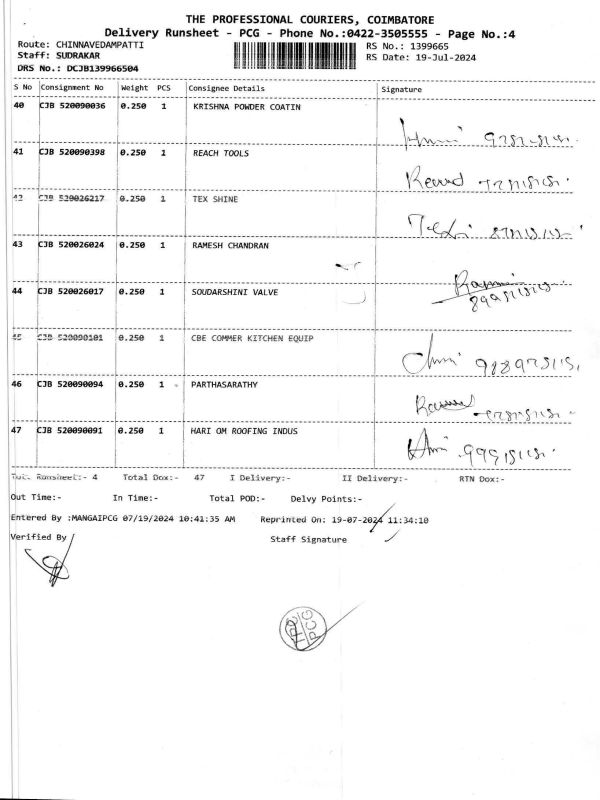 THE PROFESSIONAL COURIERS, COIMBATORE
Delivery Runsheet - PCG - Phone No.:0422-3505555 - Page No.:4
Route: CHINNAVEDAMPATTI RS No.: 1399665
Staff: SUDRAKAR RS Date: 19-Jul-2024
DRS No.: DCJB139966504
S No Consignment No Weight PCS Consignee Details Signature
40 CJB 520090036 0.250 1 KRISHNA POWDER COATIN
41 CJB 520090398 0.250 1 REACH TOOLS
42 CJB 520026217 0.250 1 TEX SHINE
43 CJB 520026024 0.250 1 RAMESH CHANDRAN
44 CJB 520026017 0.250 1 SOUDARSHINI VALVE
45 CJB 520090101 0.250 1 CBE COMMER KITCHEN EQUIP
46 CJB 520090094 0.250 1 PARTHASARATHY
47 CJB 520090091 0.250 1 HARI OM ROOFING INDUS
Runsheet:- 4 Total Dox:- 47 I Delivery:- II Delivery:- RTN Dox:-
Out Time:- In Time:- Total POD:- Delvy Points:-
Entered By :MANGAIPCG 07/19/2024 10:41:35 AM Reprinted On: 19-07-2024 11:34:10
Verified By Staff Signature
PCG